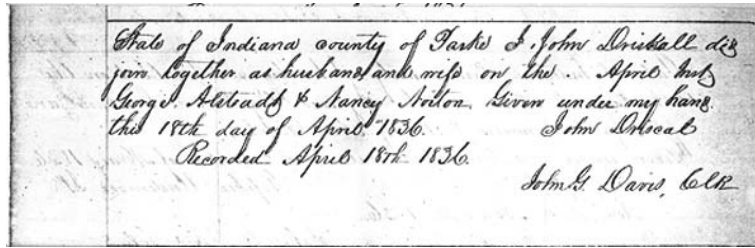 State of Indiana county of Parke I. John Driskall did
join together as husband and wife on the . April Inst
George. & Nancy Norton. Given under my hand
this 18th day of April. 1836. John Driscal
Recorded April 18th 1836
John G. Davis, Clk